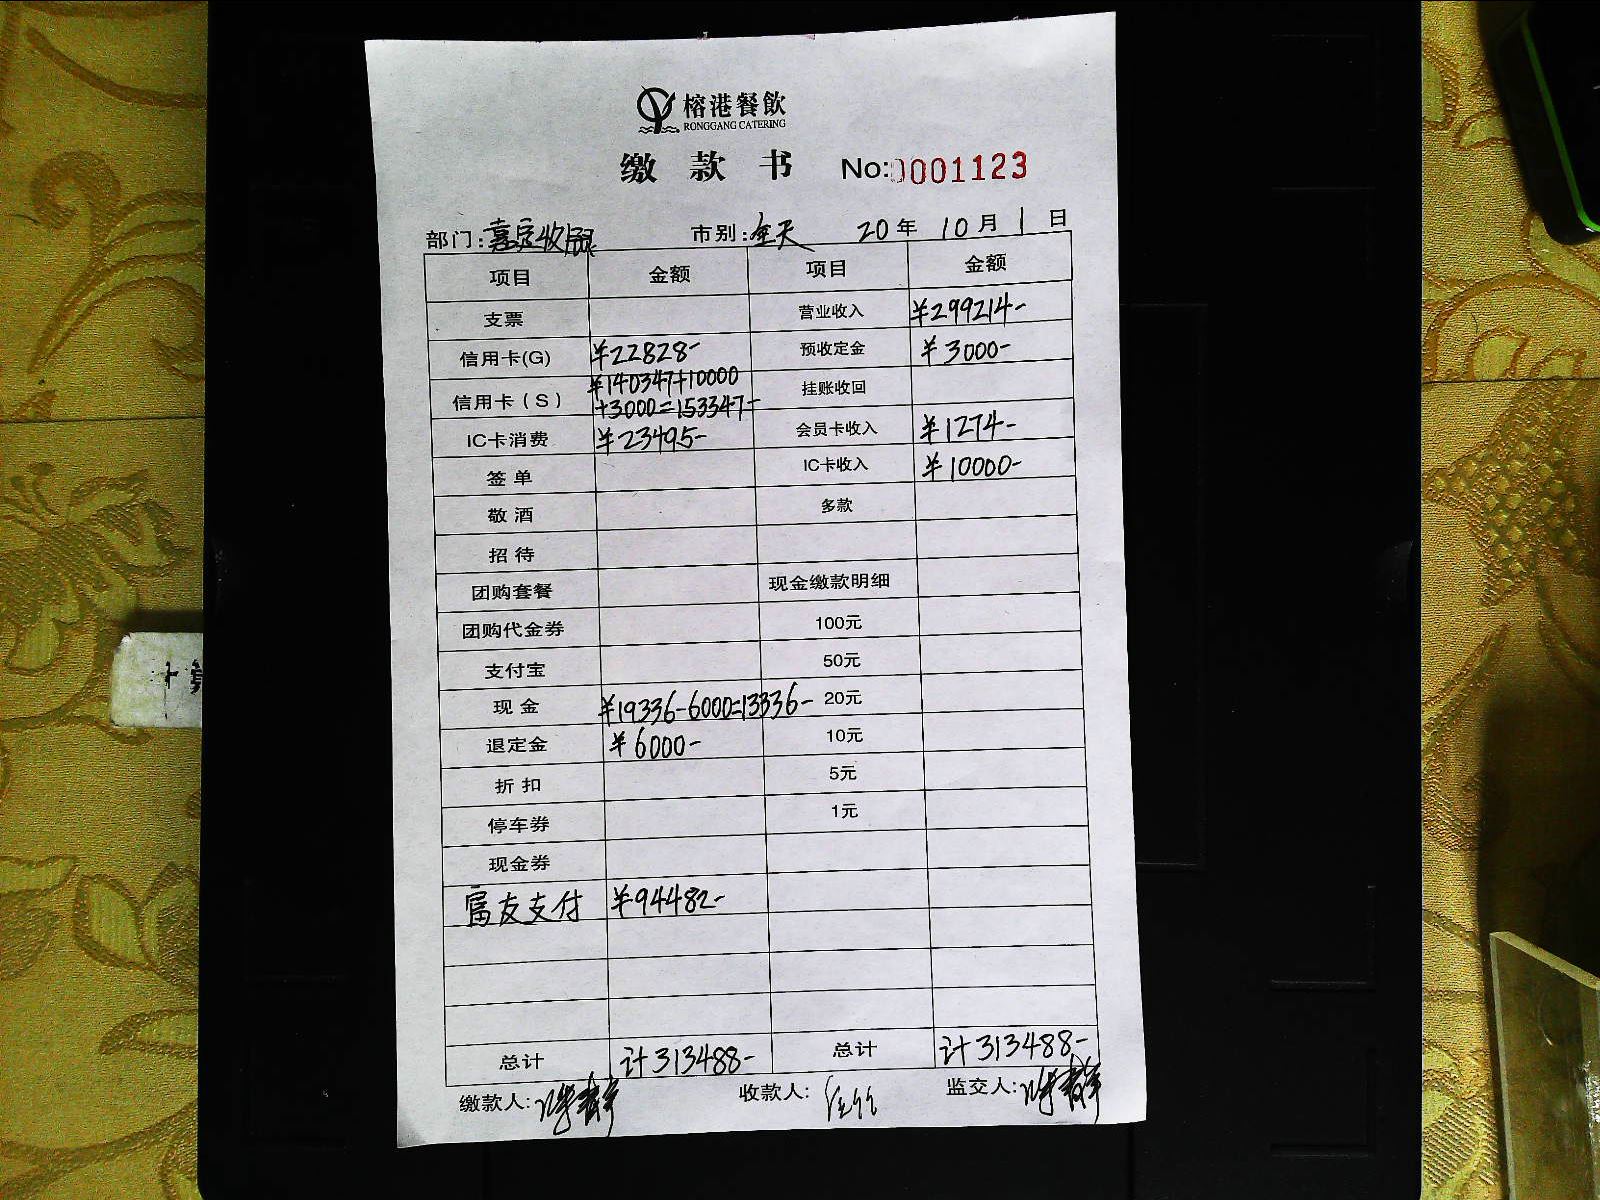 榕港餐飲
RONGGANG CATERING
缴 款 书 No:0001123
部门:嘉定收 市别:全天 20年 10月 1日
项目 金额 项目 金额
支票 营业收入 ¥299214-
信用卡(G) ¥22828- 预收定金 ¥3000-
信用卡(S) ¥140347+10000 挂账收回
+3000=153347-
IC卡消费 ¥23495- 会员卡收入 ¥1274-
签单 IC卡收入 ¥10000-
敬酒 多款
招待
团购套餐 现金缴款明细
团购代金券 100元
支付宝 50元
现金 ¥19336-6000=13336- 20元
退定金 ¥6000- 10元
折扣 5元
停车券 1元
现金券
富友支付 ¥94482-
总计 计313488- 总计 计313488-
缴款人: 收款人: 监交人: